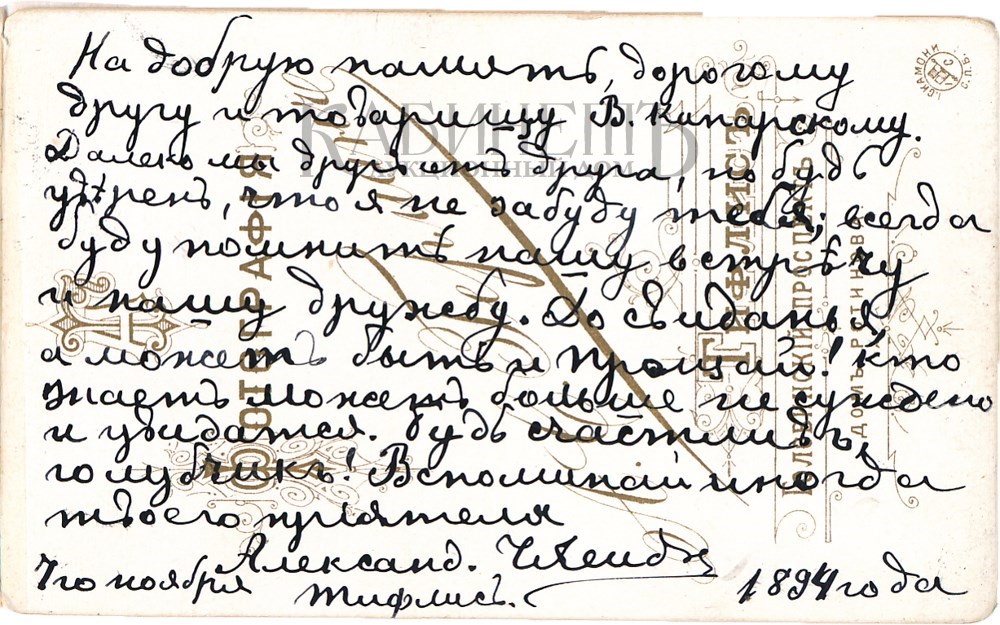 На добрую память, дорогому
другу и товарищу В. Капарскому.
Далеко мы другъ отъ друга, но будь
увѣренъ, что я не забуду тебя; всегда
буду помнить нашу встрѣчу
и нашу дружбу. До свиданья,
а можетъ быть и прощай! Кто
знаетъ можетъ больше не суждено
и увидатся. Будь счастливъ,
голубчикъ! Вспоминай иногда
твоего приятеля
Александ.
7го ноября
Тифлисъ.
1894 года
КАБИНЕТЪ
АУКЦИОННЫЙ ДОМ
ФОТОГРАФІЯ
ТИФЛИСЪ